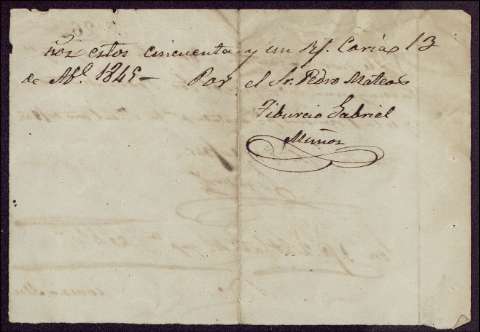 ñoz estos cincuenta y un Rs. Coria 13
de Abl. 1845 — Por el Sr. Pedro Mateos
Tiburcio Gabriel
Muñoz